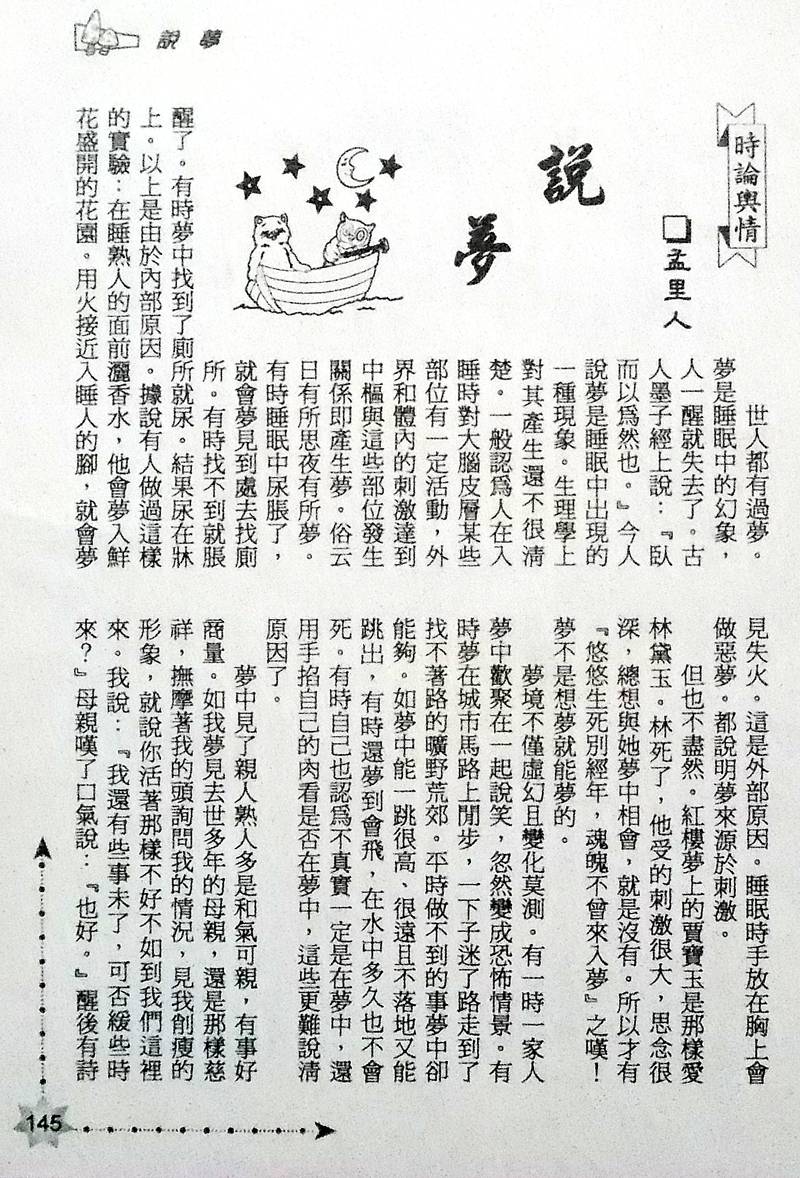 說夢
時論輿情
說夢
□孟里人
世人都有過夢。
夢是睡眠中的幻象，
人一醒就失去了。古
人墨子經上說：『臥
而以爲然也。』今人
說夢是睡眠中出現的
一種現象。生理學上
對其產生還不很清
楚。一般認爲人在入
睡時對大腦皮層某些
部位有一定活動，外
界和體內的刺激達到
中樞與這些部位發生
關係即產生夢。俗云
日有所思夜有所夢。
有時睡眠中尿脹了，
就會夢見到處去找廁
所。有時找不到就脹
醒了。有時夢中找到了廁所就尿。結果尿在牀
上。以上是由於內部原因。據說有人做過這樣
的實驗：在睡熟人的面前灑香水，他會夢入鮮
花盛開的花園。用火接近入睡人的腳，就會夢
見失火。這是外部原因。睡眠時手放在胸上會
做惡夢。都說明夢來源於刺激。
但也不盡然。紅樓夢上的賈寶玉是那樣愛
林黛玉。林死了，他受的刺激很大，思念很
深，總想與她夢中相會，就是沒有。所以才有
『悠悠生死別經年，魂魄不曾來入夢』之嘆！
夢不是想夢就能夢的。
夢境不僅虛幻且變化莫測。有一時一家人
夢中歡聚在一起說笑，忽然變成恐怖情景。有
時夢在城市馬路上閒步，一下子迷了路走到了
找不著路的曠野荒郊。平時做不到的事夢中卻
能夠。如夢中能一跳很高、很遠且不落地又能
跳出，有時還夢到會飛，在水中多久也不會
死。有時自己也認爲不真實一定是在夢中，還
用手掐自己的肉看是否在夢中，這些更難說清
原因了。
夢中見了親人熟人多是和氣可親，有事好
商量。如我夢見去世多年的母親，還是那樣慈
祥，撫摩著我的頭詢問我的情況，見我創瘦的
形象，就說你活著那樣不好不如到我們這裡
來。我說：『我還有些事未了，可否緩些時
來？』母親嘆了口氣說：『也好。』醒後有詩
145